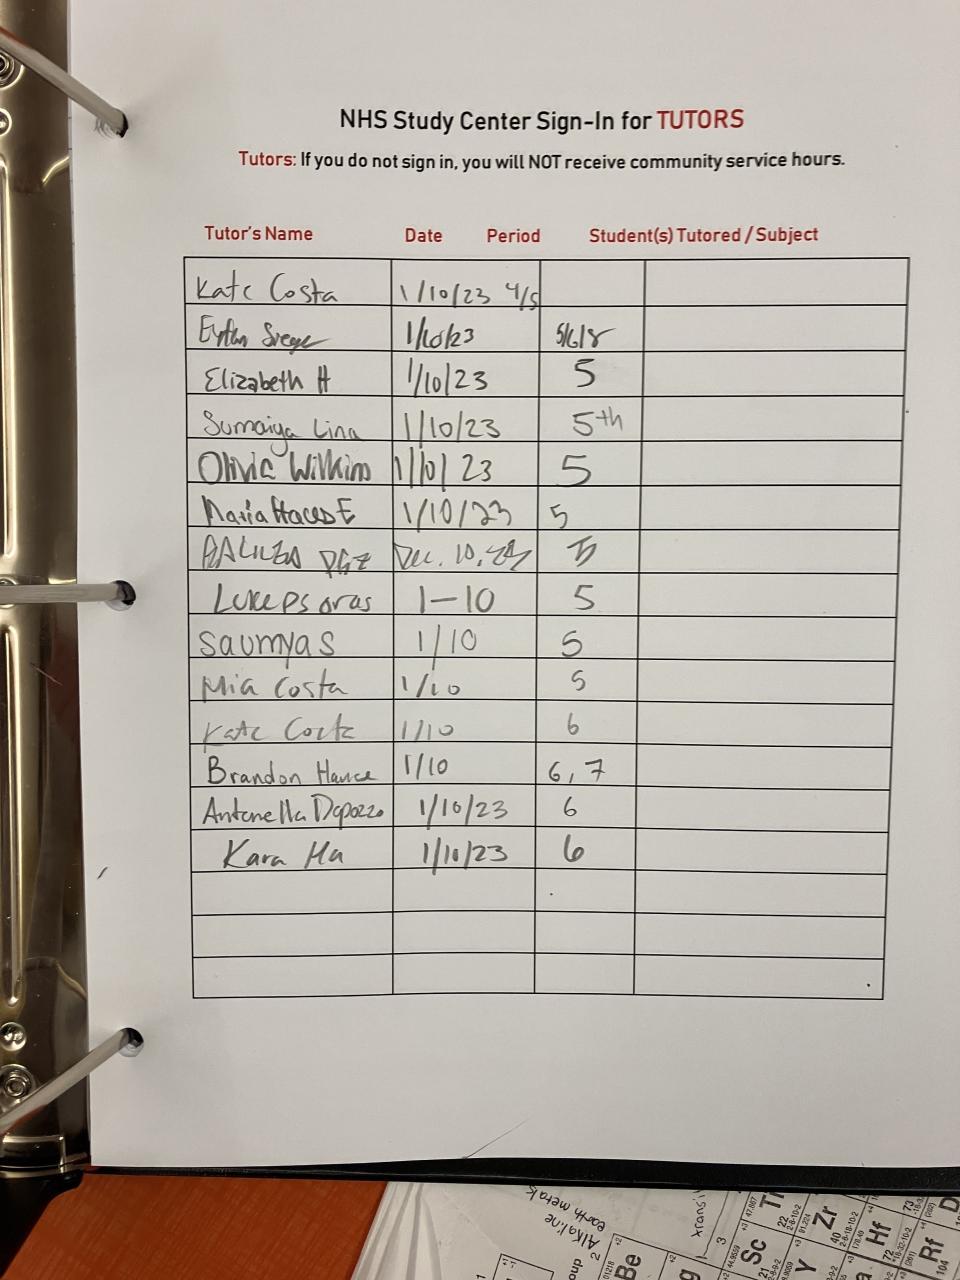 NHS Study Center Sign-In for TUTORS
Tutors: If you do not sign in, you will NOT receive community service hours.
Tutor's Name Date Period Student(s) Tutored / Subject
Kate Costa 1/10/23 4/5
1/10/23 5/6/8
Elizabeth H 1/10/23 5
Sumaiya Lina 1/10/23 5th
Olivia Wilkins 1/10/23 5
Maria E 1/10/23 5
Dec. 10, 5
Luke Psoras 1-10 5
Saumya S 1/10 5
Mia Costa 1/10 5
Kate Costa 1/10 6
Brandon Hance 1/10 6, 7
Antonella Dapozzo 1/10/23 6
Kara Ma 1/10/23 6
Alkaline
earth metals
2
Be
3
Sc
21
Ti
22
47.867
Y
Zr
40
91.224
Hf
72
178.49
Rf
104
73